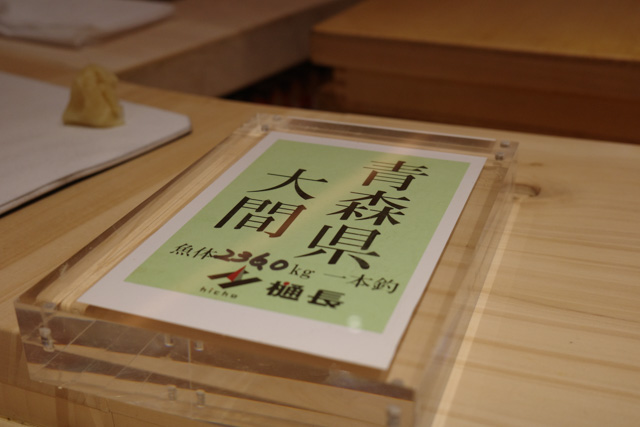 青森県
大間
魚体236.0kg 一本釣
hicho 樋長